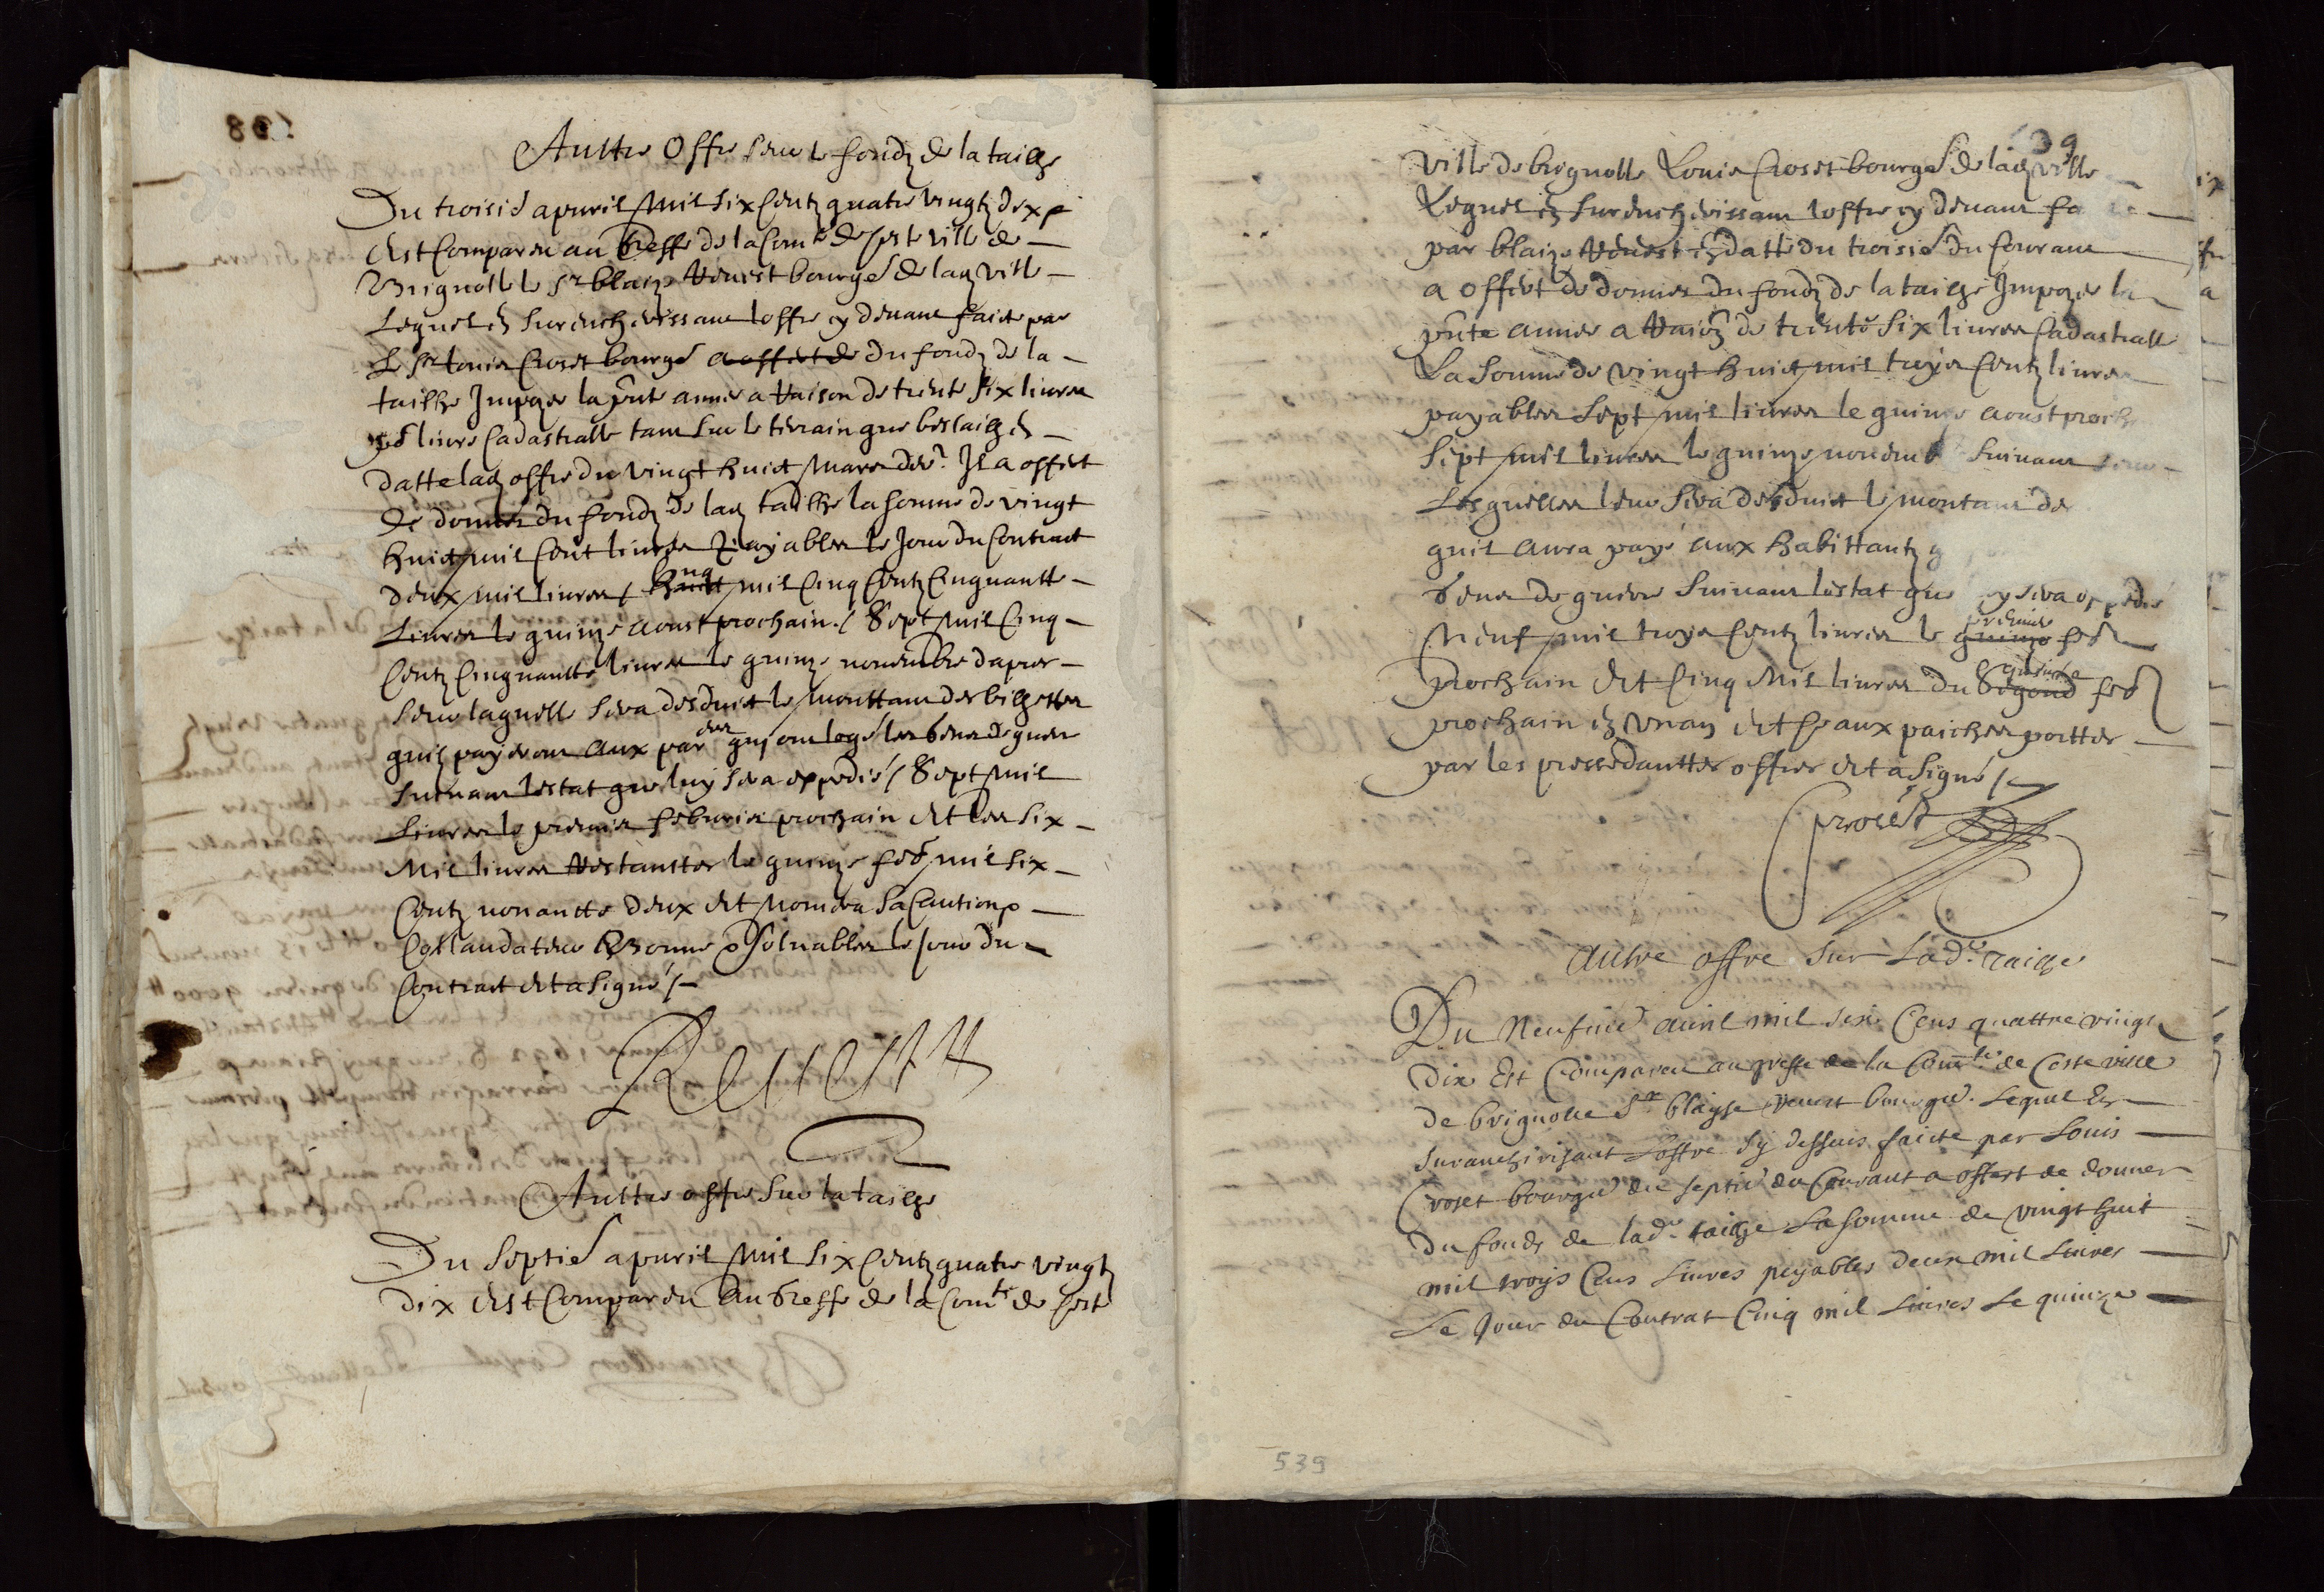 Aultre Offre sur le fondz de la tailhe
Du troisie apvril mil six centz quatre vingtz dix
est compareu au greffe de la comte de ceste ville de
Brignolle le sr blaize Revest bourge de lad ville
Lequel en surencherissant loffre cy devant faicte par
Le sr louis Croset bourge a offert de du fondz de la
tailhe Impozee la pnte annee a Raison de trente six livres
livre cadastralle tant sur le terrain que bestailh en
datte lad offre du vingt huict mars der. Il a offert
de donner du fondz de lad tailhe la somme de vingt
huict mil cent livres payables le jour du contract
deux mil livres cinq huict mil cinq centz cinquantte
Livres le quinze aoust prochain / Sept mil cinq
centz cinquantte livres le quinze novembre dapres
sur laquelle sera desduict le monttant des bilhettes
quil payeront aux par der qui ont logé les gens de guer
suivant lestat que luy sera expedié / Sept mil
Livres le premier febvrier prochain et les six
Mil livres Restanttes le quinze feb mil six
centz nonantte deux et nomera sa caution
Collaudateur Bonne & solvables le jour du
Contract et a signé /
Revestt
Aultre offre sur la tailhe
Du septie apvril mil six centz quatre vingtz
dix est compareu au greffe de la comte de ceste
539
ville de brignolle Louis Croset bourge de lad ville
Lequel en surencherissant loffre cy devant fa
par blaize Revest en datte du troisie du courant
a offert de donner du fondz de la tailhe Impozee la
pnte annee a Raion de trente six livres cadastralle
La somme de vingt huict mil troys centz livres
payables sept mil livres le quinze aoust proch
sept mil livres le quinze novemb suivant
Lesquelles leur sera desduict le montant des
quil aura payé aux habittantz q
gens de guerre suivant lestat que y sera expedié
Neuf mil troys centz livres le quinze premier feb
prochain et cinq mil livres du segond quinze feb
prochain en un an et ce aux paiches porttes
par les pressedanttes offres et a signé /
Crozet
Autre offre sur lade tailhe
Du Neufvie avril mil six cens quattre vingt
dix Est comparu au greffe de la comte de ceste ville
de brignolle sr blayse revest bourge. Lequel En
surancherisant loffre sy dessus faicte par Louis
Croset bourge du septie du courant a offert de donner
du fonds de lade tailhe La somme de vingt huit
mil troys cens livres peyables deux mil livres
Le jour du contrat cinq mil livres le quinze
539